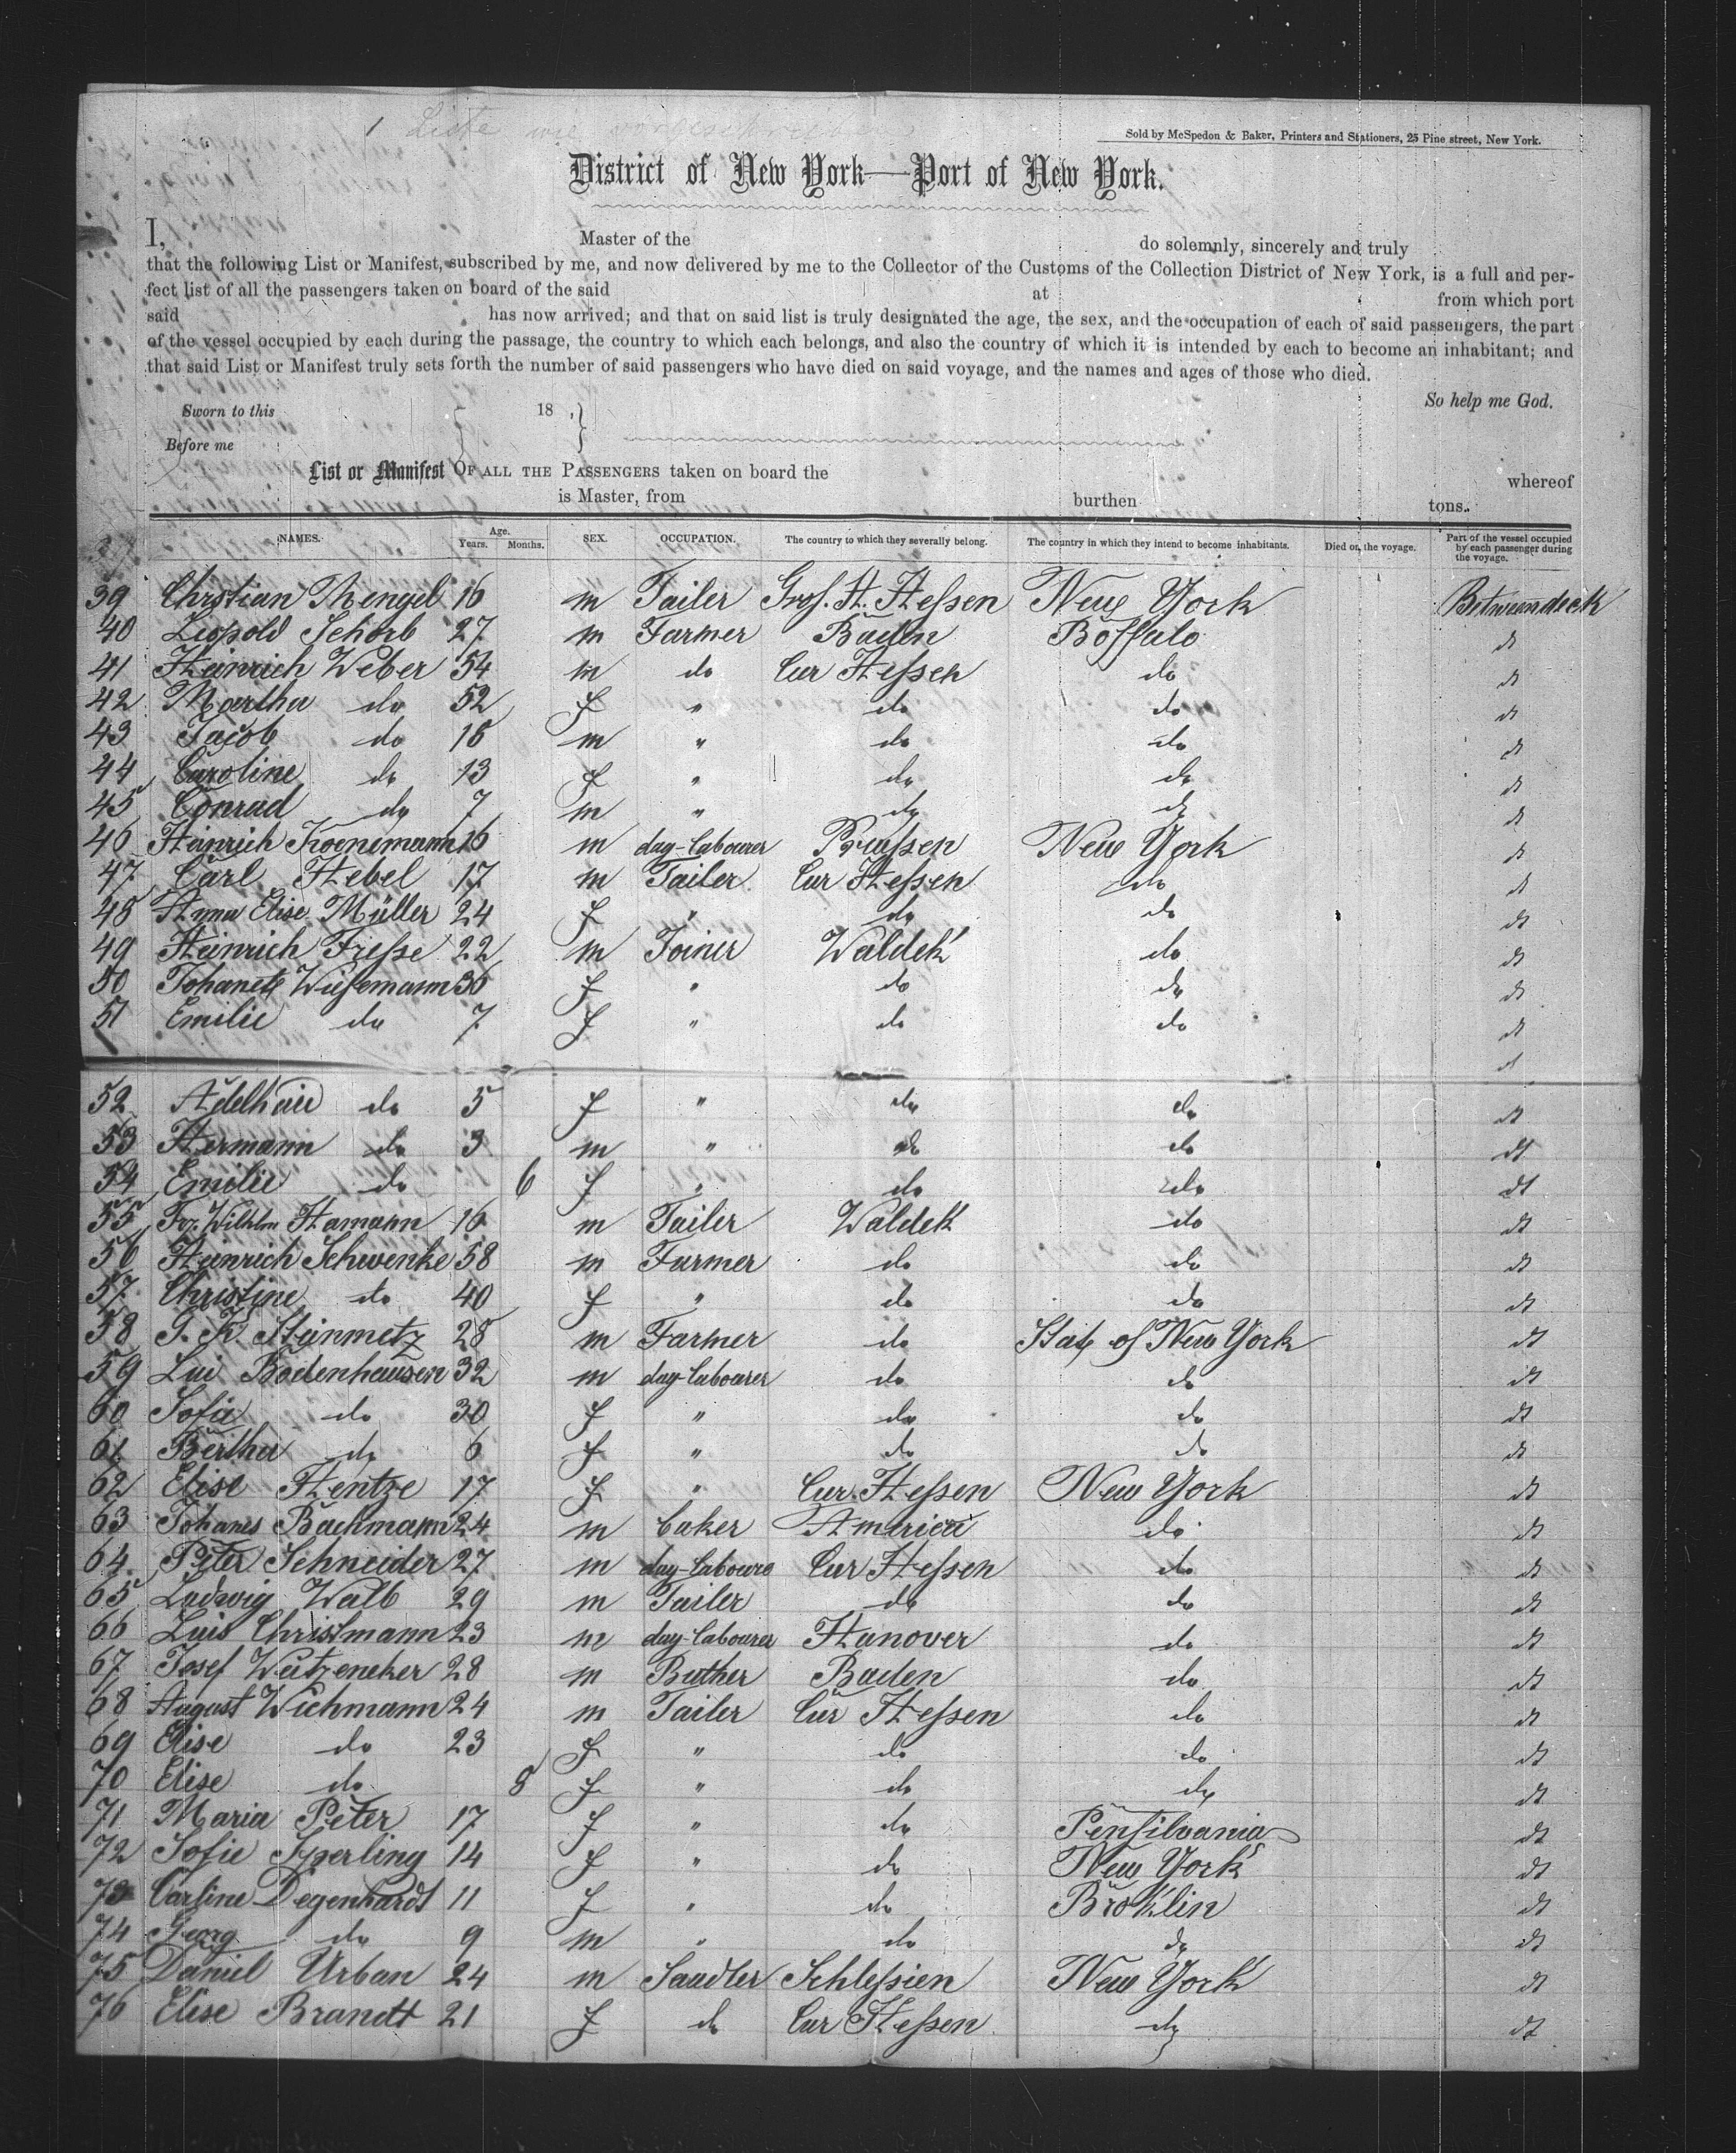 Liste wie vorgeschrieben
Sold by McSpedon & Baker, Printers and Stationers, 25 Pine street, New York.
District of New York—Port of New York.
I, Master of the do solemnly, sincerely and truly
that the following List or Manifest, subscribed by me, and now delivered by me to the Collector of the Customs of the Collection District of New York, is a full and per-
fect list of all the passengers taken on board of the said at from which port
said has now arrived; and that on said list is truly designated the age, the sex, and the occupation of each of said passengers, the part
of the vessel occupied by each during the passage, the country to which each belongs, and also the country of which it is intended by each to become an inhabitant; and
that said List or Manifest truly sets forth the number of said passengers who have died on said voyage, and the names and ages of those who died.
Sworn to this 18 So help me God.
Before me
List or Manifest OF ALL THE PASSENGERS taken on board the whereof
is Master, from burthen tons.
NAMES. Age. Years. Months. SEX. OCCUPATION. The country to which they severally belong. The country in which they intend to become inhabitants. Died on the voyage. Part of the vessel occupied by each passenger during the voyage.
39 Christian Mengel 16 m Tailer Gros. H. Hessen New York Betweendeck
40 Leopold Schorb 27 m Farmer Baden Boffalo dt
41 Heinrich Weber 54 m do Cur Hessen do dt
42 Martha do 52 f " do do dt
43 Jacob do 16 m " do do dt
44 Caroline do 13 f " do do dt
45 Conrad do 7 m " do do dt
46 Heinrich Koenemann 16 m day-labourer Prussen New York dt
47 Carl Hebel 17 m Tailer Cur Hessen do dt
48 Anna Elise Müller 24 f " do do dt
49 Heinrich Friesse 22 m Joiner Waldek do dt
50 Johanete Wiesemann 36 f " do do dt
51 Emilie do 7 f " do do dt
dt
52 Adelhaid do 5 f " do do dt
53 Hermann do 3 m " do do dt
54 Emilie do 6 f " do do dt
55 Frz. Wilhlm Hamann 16 m Tailer Waldek do dt
56 Heinrich Schwenke 58 m Farmer do do dt
57 Christine do 40 f " do do dt
58 G. K. Steinmetz 28 m Farmer do State of New York dt
59 Lui Bodenhausen 32 m day-labourer do do dt
60 Sofia do 30 f " do do dt
61 Bertha do 6 f " do do dt
62 Elise Hentze 17 f " Cur. Hessen New York dt
63 Johanes Backmann 24 m baker America do dt
64 Peter Schneider 27 m day-laboure Cur Hessen do dt
65 Ludwig Walb 29 m Tailer do do dt
66 Luis Christmann 23 m day-labourer Hanover do dt
67 Josef Weitzeneker 28 m Buther Baden do dt
68 August Wichmann 24 m Tailer Cur Hessen do dt
69 Elise do 23 f " do do dt
70 Elise do 8 f " do do dt
71 Maria Peter 17 f " do Pensilvania dt
72 Sofie Sperling 14 f " do New York dt
73 Carline Degenhardt 11 f " do Broklin dt
74 Georg do 9 m " do do dt
75 Daniel Urban 24 m Saadler Schlessien New York dt
76 Elise Brandt 21 f do Cur Hessen do dt